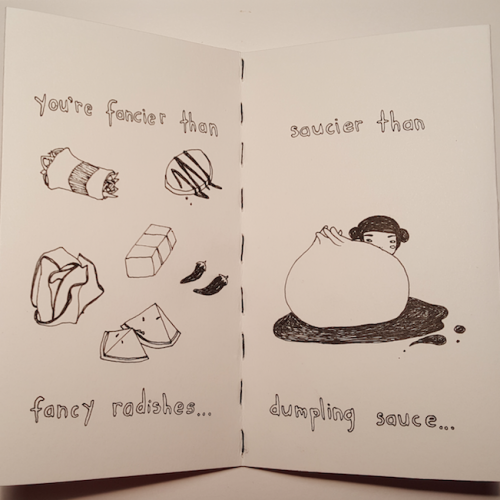 you're fancier than
fancy radishes...
saucier than
dumpling sauce...